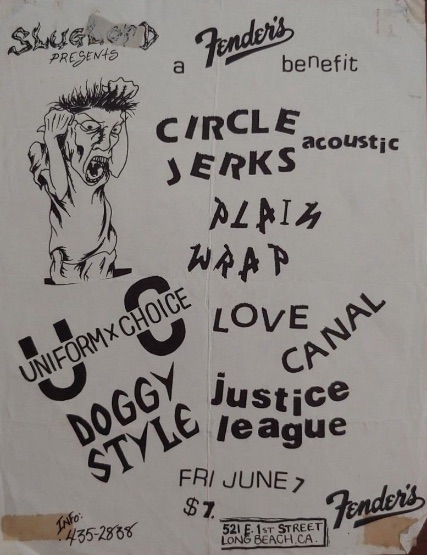 SLUGLORD
PRESENTS
a Fender's benefit
CIRCLE JERKS acoustic
PLAIN
WRAP
UC
UNIFORM X CHOICE
LOVE
CANAL
DOGGY
STYLE
justice
league
FRI JUNE 7
$7.
INFO:
435-2838
521 E. 1ST STREET
LONG BEACH, CA.
Fender's